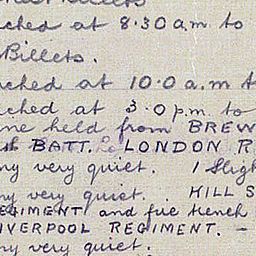 ched at 8.30 a.m to
Billets.
ched at 10.0 a.m t
ched at 3.0 p.m. to
ne held from BREW
BATT. LONDON R
ny very quiet. 1 Sligh
ny very quiet. HILL S
EGIMENT and fire trench
IVERPOOL REGIMENT. –
ny very quiet.